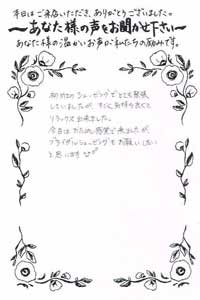 本日はご来店いただき、ありがとうございました。
〜あなた様の声をお聞かせ下さい〜
あなた様の温かいお声が私たちの励みです。
初めてのシェービングでとても緊張
していましたが、すごく気持ち良くて
リラックス出来ました。
今日はおためし感覚で来ましたが、
ブライダルシェービングもお願いしたい
と思います